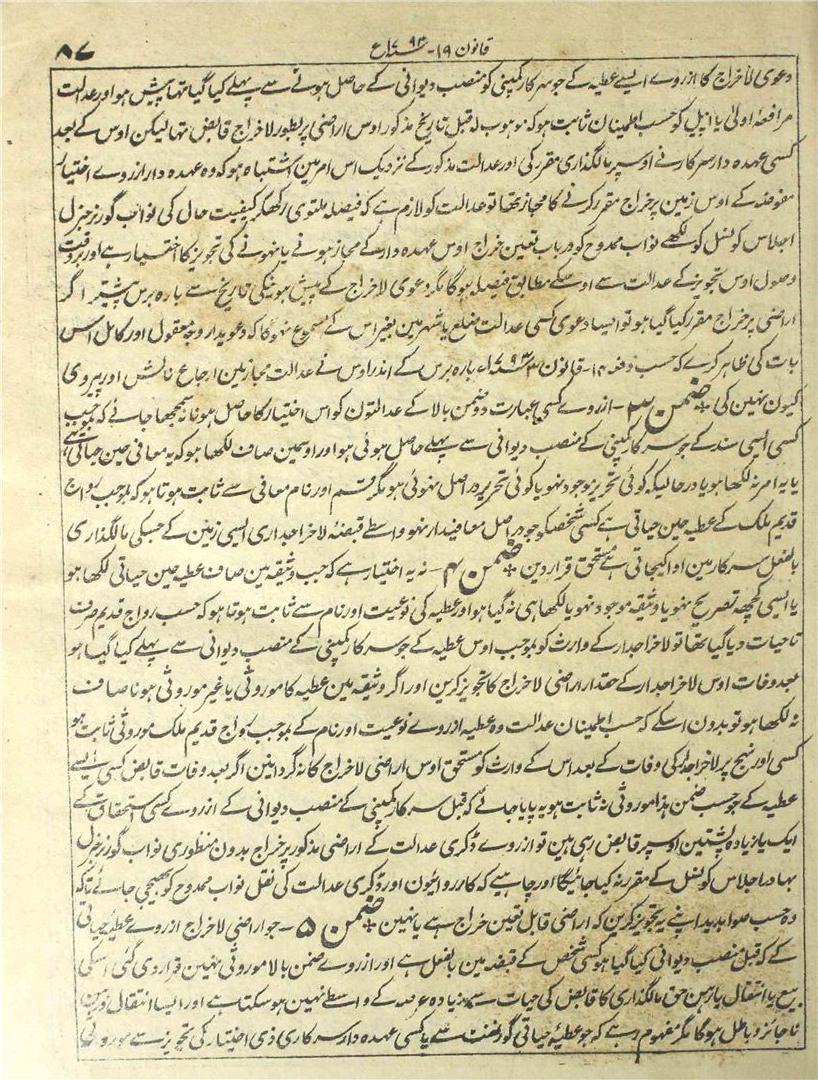 قانون ۱۹- ۱۷۹۳ سنہ ع ۸۷
دعوی لاخراج کا ازروے ایسے عطیہ کے جو سرکار کمپنی کو منصب دیوانی کے حاصل ہونے سے پہلے کیا گیا تہا پیش ہو اور عدالت
مرافعہٴ اولیٰ یا اپیل کو حسب اطمینان ثابت ہو کہ موہوب لہ قبل تاریخ مذکور اوس اراضی پر بطور لاخراج قابض تہا لیکن اوس کے بعد
کسی عہدہ دار سرکار نے اوسپر مالگذاری مقرر کی اور عدالت مذکور کے نزدیک اس امر مین اشتباہ ہو کہ وہ عہدہ دار ازروے اختیار
مفوضہ کے اوس زمین پر خراج مقرر کرنے کا مجاز تھا تو عدالت کو لازم ہے کہ فیصلہ ملتوی رکھکر کیفیت حال کی نواب گورنر جنرل
اجلاس کونسل کو لکھے نواب ممدوح کو در باب تعین خراج اوس عہدہ دار کے مجاز ہونے یا نہونے کی تجویز کا اختیار ہے اور بروقت
وصول اوس تجویز کے عدالت سے اوسکے مطابق فیصلہ ہوگا مگر دعوی لاخراج کے پیش ہونیکی تاریخ سے بارہ برس پیشتر اگر
اراضی پر خراج مقرر کیا گیا ہو تو ایسا دعوی کسی عدالت ضلع یا شہر مین بغیر اس کے مسموع نہوگا کہ دعویدار وجہ معقول اور کامل اس
بات کی ظاہر کرے کہ حسب دفعہ ۱۴- قانون ۳ ۱۷۹۳ سنہء بارہ برس کے اندر اوس نے عدالت مجاز مین ارجاع نالش اور پیروی
کیون نہین کی ٭ ضمن ۳- ازروے کسی عبارت دو ضمن بالا کے عدالتون کو اس اختیار کا حاصل ہونا نہ سمجھا جائے کہ بموجب
کسی ایسی سند کے جو سرکار کمپنی کے منصب دیوانی سے پہلے حاصل ہوئی ہو اور اوسمین صاف لکھا ہو کہ یہ معافی حین حیاتی ہے
یا یہ امر نہ لکھا ہو یا در حالیکہ کوئی تحریر موجود نہو یا کوئی تحریر دراصل نہوئی ہو مگر قسم اور نام معافی سے ثابت ہوتا ہو کہ بموجب رواج
قدیم ملک کے عطیہ حین حیاتی ہے کسی شخصکو جو دراصل معافیدار نہو واسطے قبضہٴ لاخراجداری ایسی زمین کے جسکی مالگذاری
بالفعل سرکار مین ادا کیجاتی ہے مستحق قرار دین ٭ ضمن ۴- نہ یہ اختیار ہے کہ جب وثیقہ مین صاف عطیہ حین حیاتی لکھا ہو
یا ایسی کچھہ تصریح نہو یا وثیقہ موجود نہو یا لکھا ہی نہ گیا ہو اور عطیہ کی نوعیت اور نام سے ثابت ہوتا ہو کہ حسب رواج قدیم صرف
تا حیات دیا گیا تھا تو لاخراجدار کے وارث کو بموجب اوس عطیہ کے جو سرکار کمپنی کے منصب دیوانی سے پہلے کیا گیا ہو
بعد وفات اوس لاخراجدار کے حقدار اراضی لاخراج کا تجویز کرین اور اگر وثیقہ مین عطیہ کا موروثی یا غیر موروثی ہونا صاف
نہ لکھا ہو تو بدون اسکے کہ حسب اطمینان عدالت وہ عطیہ ازروے نوعیت اور نام کے بموجب رواج قدیم ملک موروثی ثابت ہو
کسی اور نہج پر لاخراجدار کی وفات کے بعد اس کے وارث کو مستحق اوس اراضی لاخراج کا نہ گردانین اگر بعد وفات قابض کسی ایسے
عطیہ کے جو حسب ضمن ہذا موروثی نہ ثابت ہو یہ پایا جائے کہ قبل سرکار کمپنی کے منصب دیوانی کے ازروے کسی استحقاق کے
ایک یا زیادہ پشتین اوسپر قابض رہی ہین تو ازروے ڈگری عدالت کے اراضی مذکور پر خراج بدون منظوری نواب گورنر جنرل
بہادر اجلاس کونسل کے مقرر نہ کیا جائیگا اور چاہیے کہ کارروائیون اور ڈگری عدالت کی نقل نواب ممدوح کو بھیجی جائے تاکہ
وہ حسب صوابدید اپنے یہ تجویز کرین کہ اراضی قابل تعین خراج ہے یا نہین ٭ ضمن ۵- جو اراضی لاخراج ازروے عطیہٴ حیاتی
کے کہ قبل منصب دیوانی کیا گیا ہو کسی شخص کے قبضہ مین بالفعل ہے اور ازروے ضمن بالا موروثی نہین قرار دی گئی اسکی
بیع یا انتقال یا رہن حق مالگذاری کا قابض کی حیات سے زیادہ عرصہ کے واسطے نہین ہو سکتا ہے اور ایسا انتقال اور رہن
ناجائز و باطل ہوگا مگر مفہوم رہے کہ جو عطیہٴ حیاتی گورنمنٹ سے یا کسی عہدہ دار سرکاری ذی اختیار کی تجویز سے موروثی